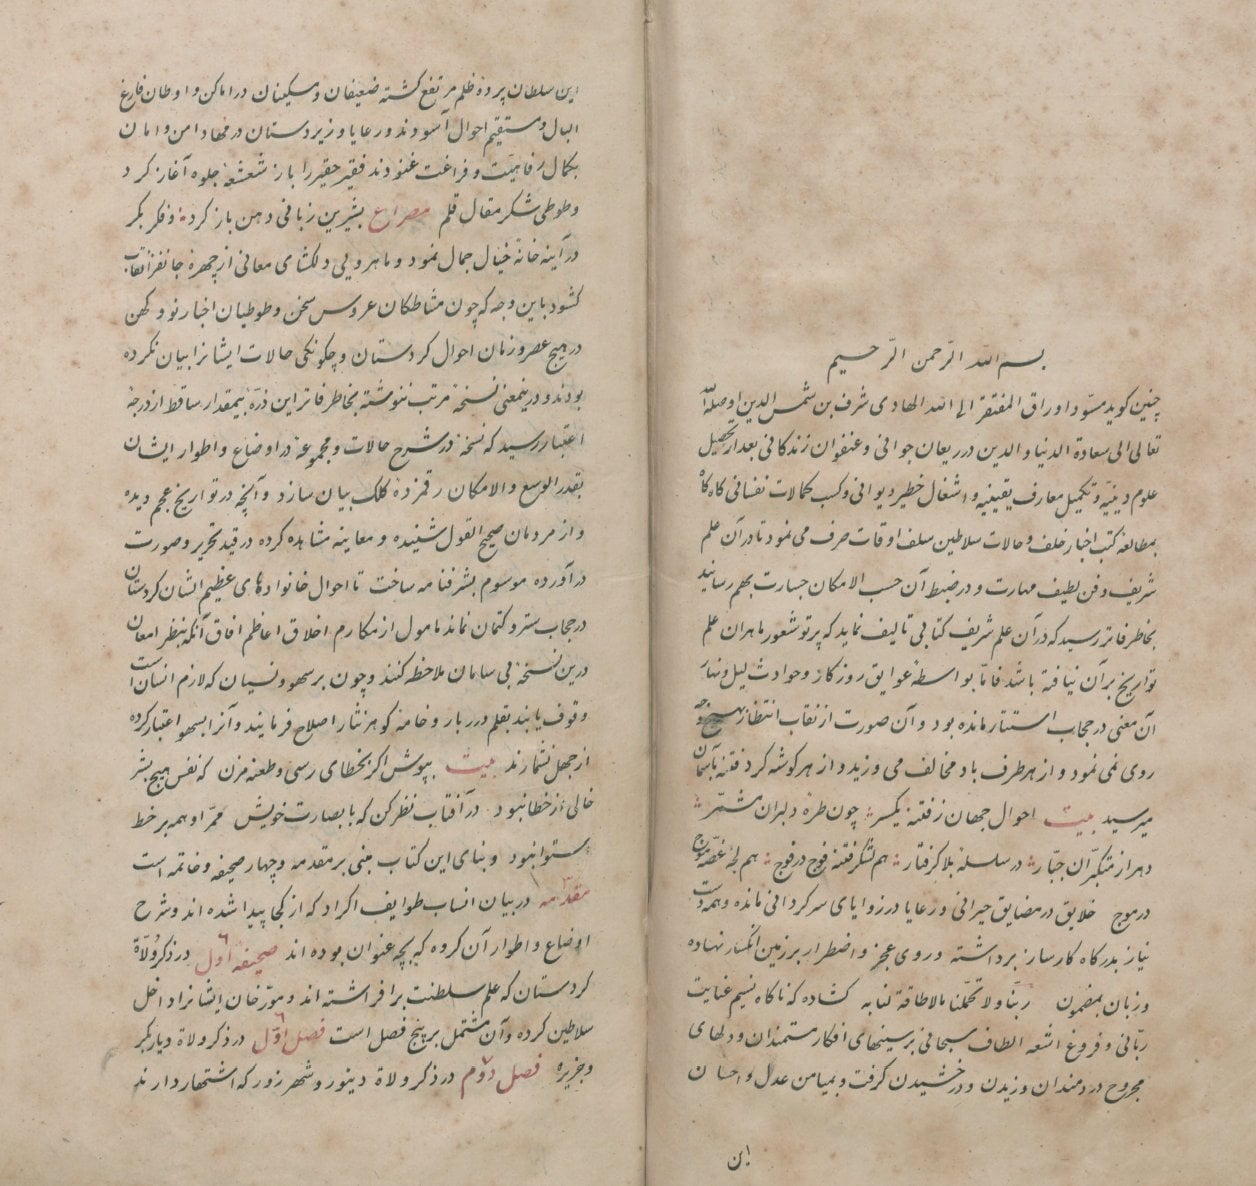 بسم الله الرّحمن الرّحیم
چنین کوید مسوّد اوراق المفتقر الی الله الهادی شرف بن شمس الدین اوصله الله
تعالی الی سعادة الدنیا و الدین در ریعان جوانی و عنفوان زندکانی بعد از تحصیل
علوم دینیّه و تکمیل معارف یقینیه و اشغال خطیر دیوانی و کسب کمالات نفسانی کاه کاه
بمطالعه کتب اخبار خلف و حالات سلاطین سلف اوقات صرف می نمود تا در آن علم
شریف و فن لطیف مهارت و در ضبط آن حسب الامکان جسارت بهم رسانید
بخاطر فاتر رسید که در آن علم شریف کتابی تالیف نماید که پرتو شعور ماهران علم
تواریخ بر آن نیافته باشد فامّا بواسطهٔ عوایق روزکار و حوادث لیل و نهار
آن معنی در حجاب استتار مانده بود و آن صورت از نقاب انتظار بهیچ وجه
روی نمی نمود و از هر طرف باد مخالف می وزید و از هر کوشه کرد فتنه بآسمان
میرسید بیت احوال جهان ز فتنه یکسر چون طرهٔ دلبران مشمّر
دهر از متکبّران جبّار در سلسلهٔ بلا کرفتار هم لشکر فتنه فوج در فوج هم لجهٔ غصّه موج
در موج خلایق در مضایق حیرانی و رعایا در زوایای سرکردانی مانده و همه دست
نیاز بدرکاه کارساز برداشته و روی عجز و اضطرار بر زمین انکسار نهاده
و زبان بمضمون ربّنا و لا تحمّلنا ما لا طاقة لنا به کشاده که ناکاه نسیم عنایت
ربّانی و فروغ اشعه الطاف سبحانی بر سینهای افکار مستمندان و دلهای
مجروح دردمندان وزیدن و درخشیدن کرفت و بمیامن عدل و احسان
این
این سلطان پردهٔ ظلم مرتفع کشته ضعیفان و مسکینان در اماکن و اوطان فارغ
البال و مستقیم احوال آسودند و رعایا و زیردستان در مهاد امن و امان
بکمال رفاهیّت و فراغت غنودند فقیر حقیر را باز شعشعهٔ جلوه آغاز کرد
و طوطی شکر مقال قلم مصراع بشیرین زبانی دهن باز کرد و فکر بکر
در آینه خانهٔ خیال جمال نمود و ماهرویی دلکشای معانی از چهرهٔ جانفزا نقاب
کشود باین وجه که چون مشاطکان عروس سخن و طوطیان اخبار نو و کهن
در هیچ عصر و زمان احوال کردستان و چکونکی حالات ایشانرا بیان نکرده
بودند و درینمعنی نسخهٔ مرتب ننوشته بخاطر فاتر این ذرّهٔ بیمقدار ساقط از درجهٔ
اعتبار رسید که نسخهٔ در شرح حالات و مجموعهٔ در اوضاع و اطوار ایشان
بقدر الوسع و الامکان رقمزدهٔ کلک بیان سازد و آنچه در تواریخ عجم دیده
و از مردمان صحیح القول شنیده و معاینه مشاهده کرده در قید تحریر و صورت
درآورده موسوم بشرفنامه ساخت تا احوال خانوادهای عظیم الشان کردستان
در حجاب ستر و کتمان نماند مامول از مکارم اخلاق اعاظم افاق آنکه بنظر امعان
درین نسخهٔ بی سامان ملاحظه کنند و چون بر سهو و نسیان که لازم انسان است
وقوف یابند بقلم درربار و خامهٔ کوهرنثار اصلاح فرمایند و آنرا بسهو اعتبار کرده
از جهل نشمارند بیت بپوش اکر بخطای رسی و طعنه مزن که نفس هیچ بشر
خالی از خطا نبود در آفتاب نظر کن که با بصارت خویش ممرّ او همه بر خط
استوا نبود و بنای این کتاب مبنی بر مقدمه و چهار صحیفه و خاتمه است
مقدمه در بیان انساب طوایف اکراد که از کجا پیدا شده اند و شرح
اوضاع و اطوار آن کروه که بچه عنوان بوده اند صحیفه اول در ذکر ولاة
کردستان که علم سلطنت برافراشته اند و مورّخان ایشانرا داخل
سلاطین کرده و آن مشتمل بر پنج فصل است فصل اوّل در ذکر ولاة دیاربکر
و جزیره فصل دوم در ذکر ولاة دینور و شهرزور که اشتهار دارند